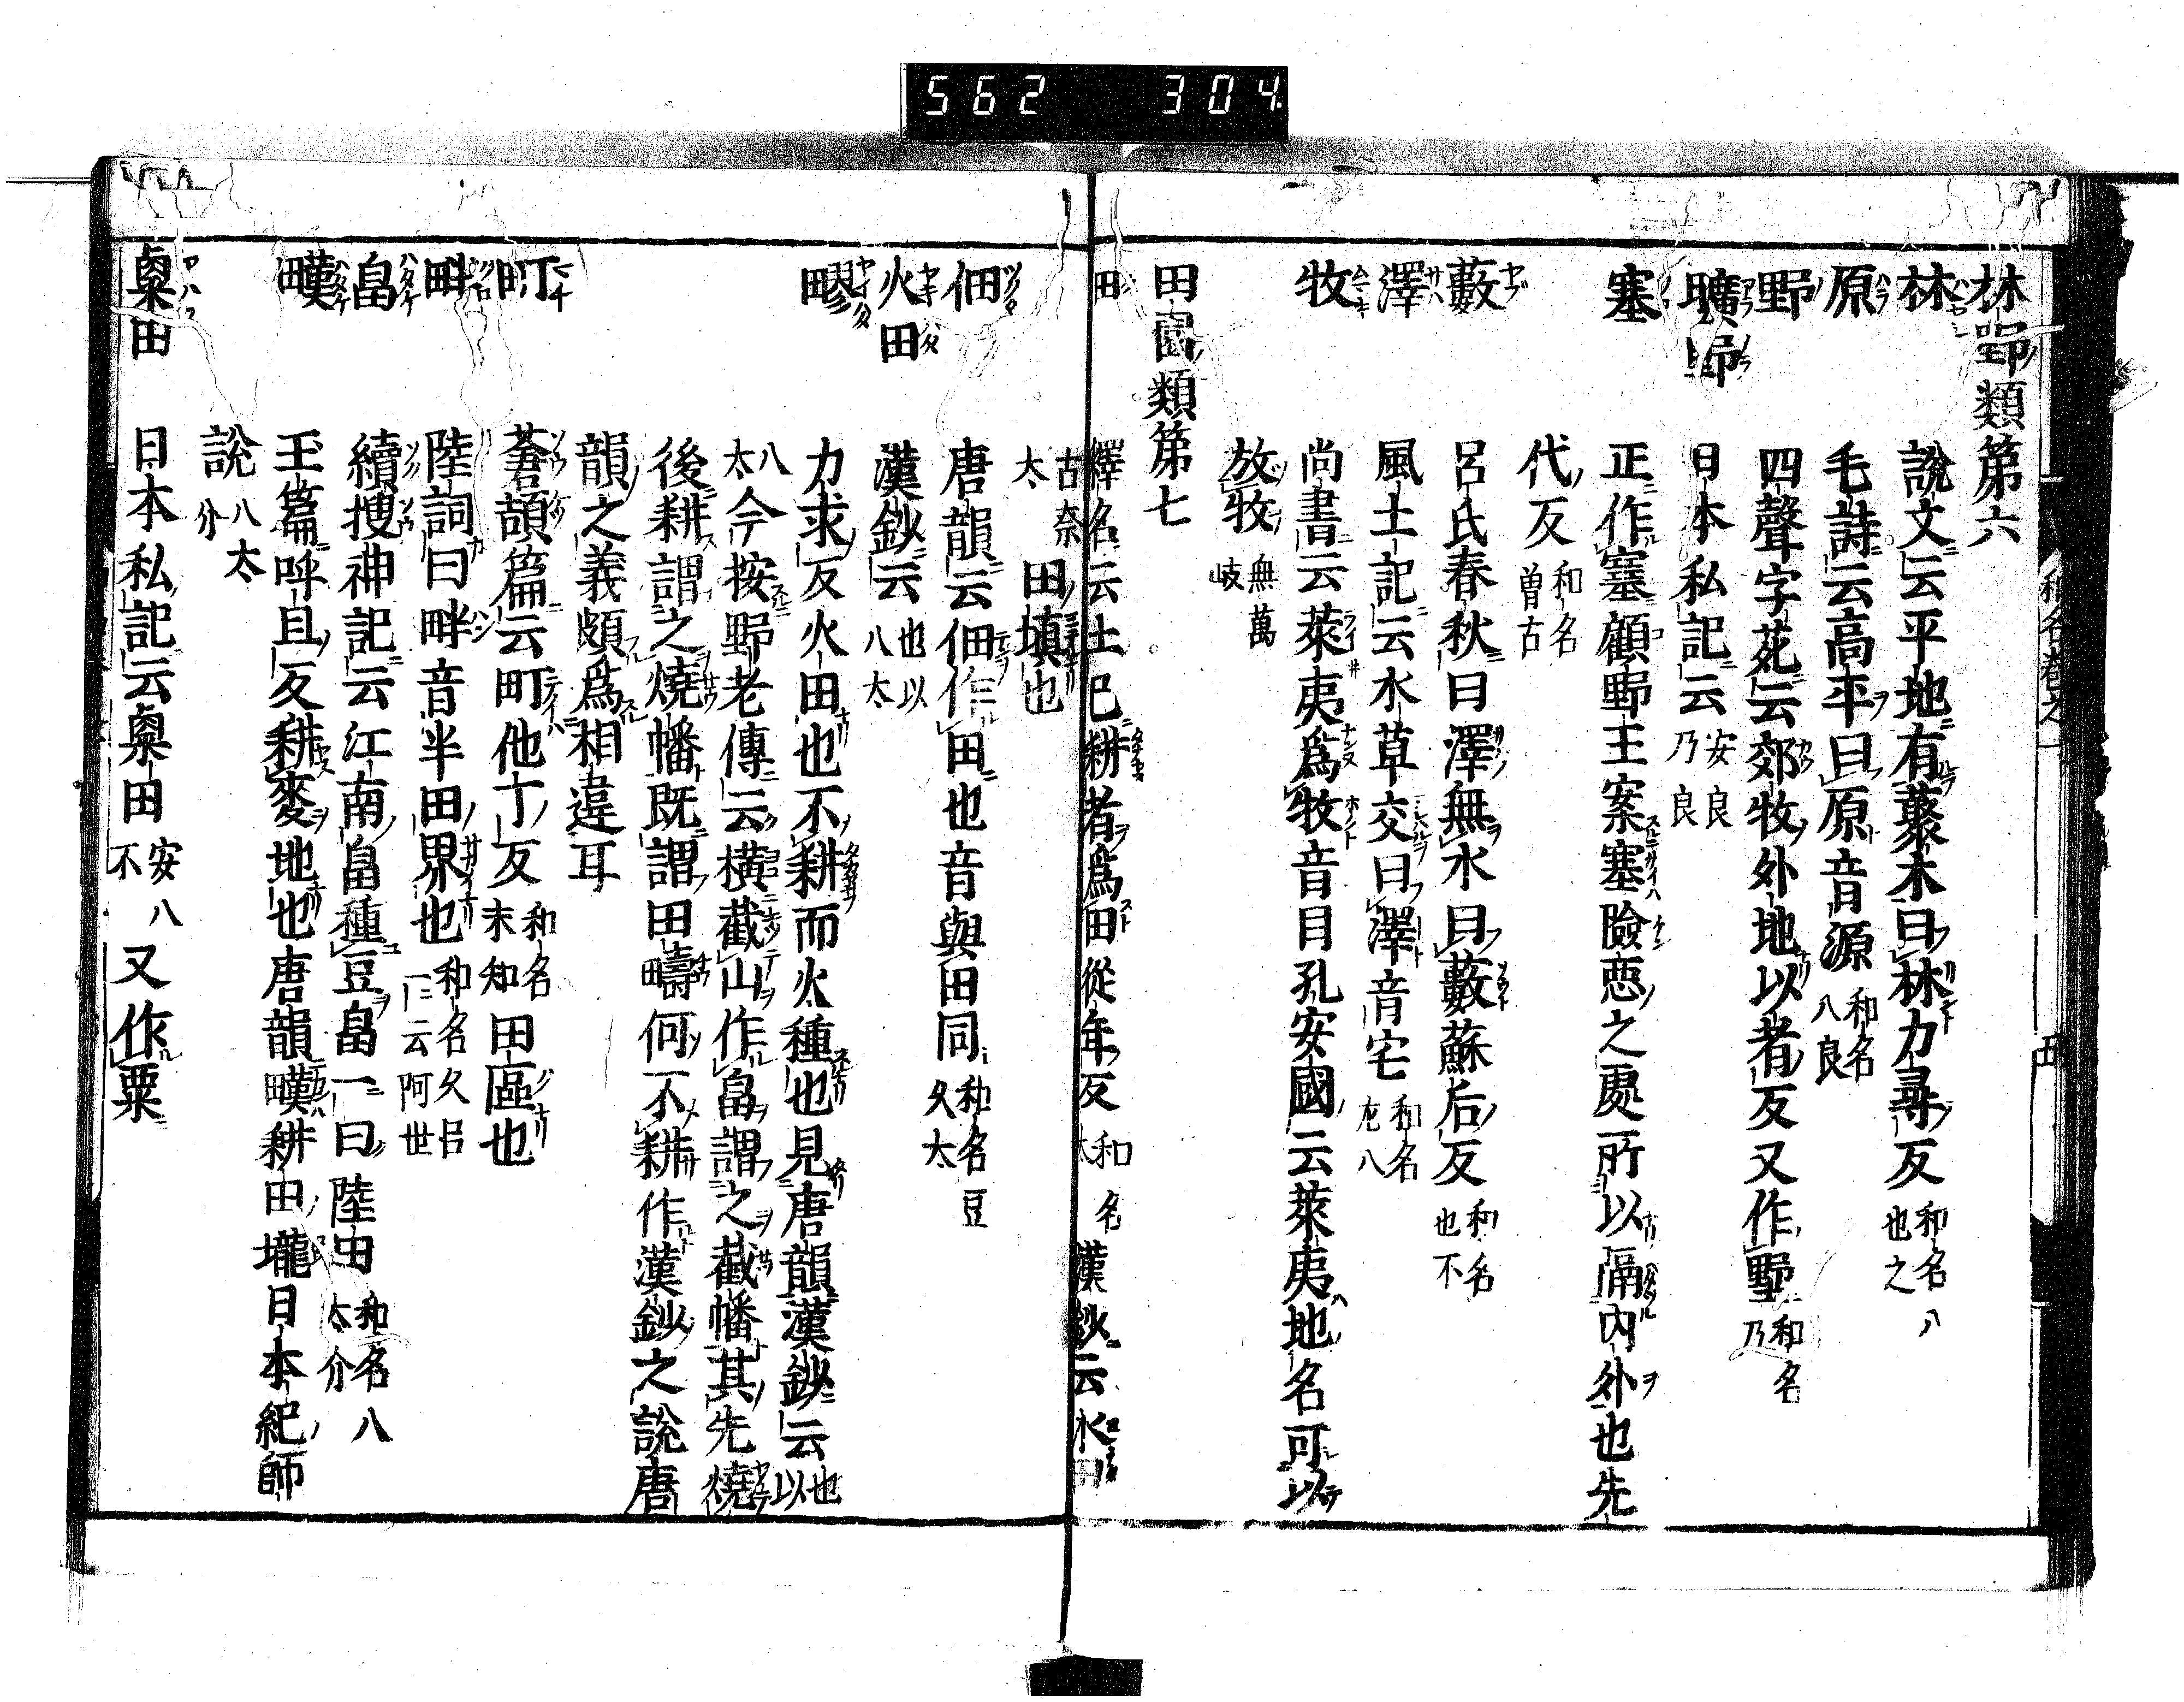 562 304
林野類第六
林 說文云平地有藂木曰林力尋反 和名八也之
原 毛詩云高平曰原音源 和名八良
野 四聲字苑云郊牧外地以者反又作墅 和名乃
曠野 日本私記云 安良乃良
塞 正作𡫳顧野王案塞險悪之處所以隔內外也先
代反 和名曽古
藪 呂氏春秋曰澤無水曰藪蘇后反 和名也不
澤 風土記云水草交曰澤音宅 和名左八
牧 尚書云萊夷爲牧音目孔安國云萊夷地名可以
放牧 無萬岐
田園類第七
田 釋名云土已耕者爲田徒年反 和名太 漢鈔云水田
古奈太 田填也
佃 唐韻云佃作田也音與田同 和名豆久太
火田 漢鈔云 也以八太
疁 力求反火田也不耕而火種也見唐韻漢鈔云 也以
八太 今按野老傳云横截山作畠謂之截幡其先燒
後耕謂之燒幡既謂田疇何不耕作漢鈔之說唐
韻之義頗爲相違耳
町 蒼頡篇云町他丁反 和名末知 田區也
畔 陸詞曰畔音半田界也 和名久呂一云阿世
畠 續搜神記云江南畠種豆畠一曰陸田 和名八太介
𤳉 玉篇呼旦反耕麥地也唐韻𤳉耕田壠日本紀師
說 八太介
粟田 日本私記云粟田 安八不 又作粟
和名卷之一 五